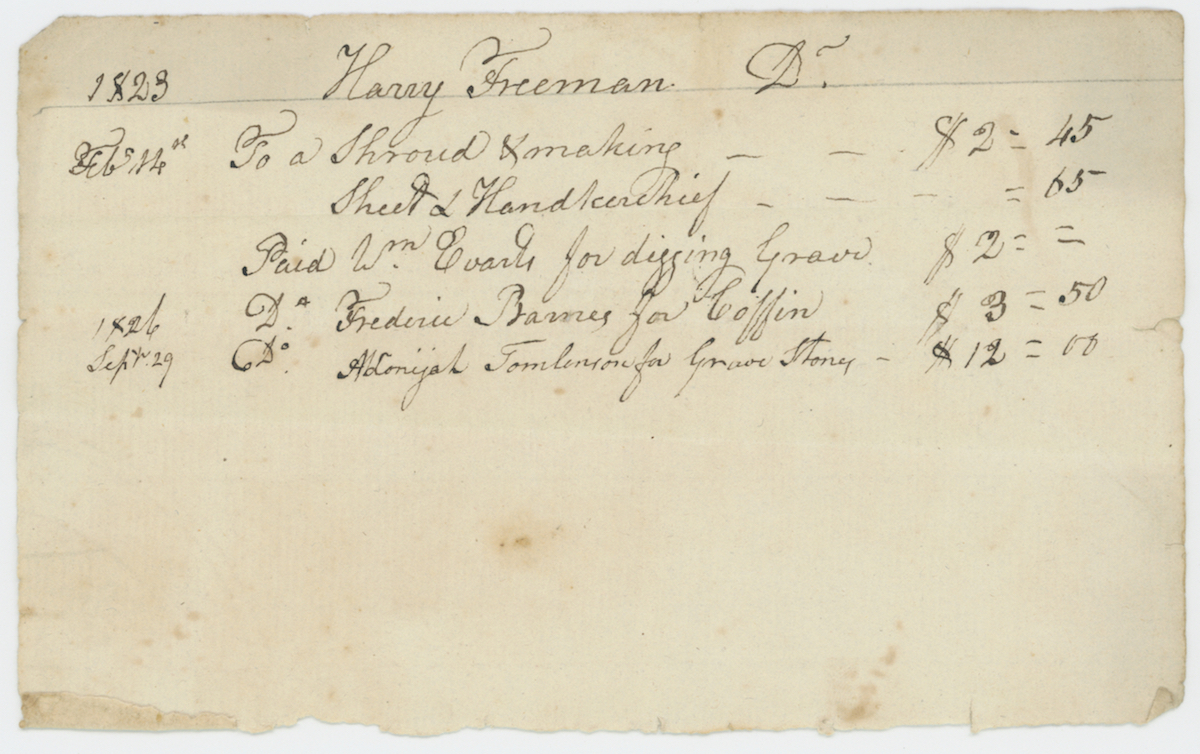 1823 Harry Freeman Dr
Feby 14th To a Shroud & making — — $ 2 = 45
Sheet & Handkerchief - — — = 65
Paid Wm Evarts for digging Grave $ 2 = =
Do. Frederic Barnes for Coffin $ 3 = 50
1826
Septr. 29 Do. Adonijah Tomlenson for Grave Stones - $ 12 = 00